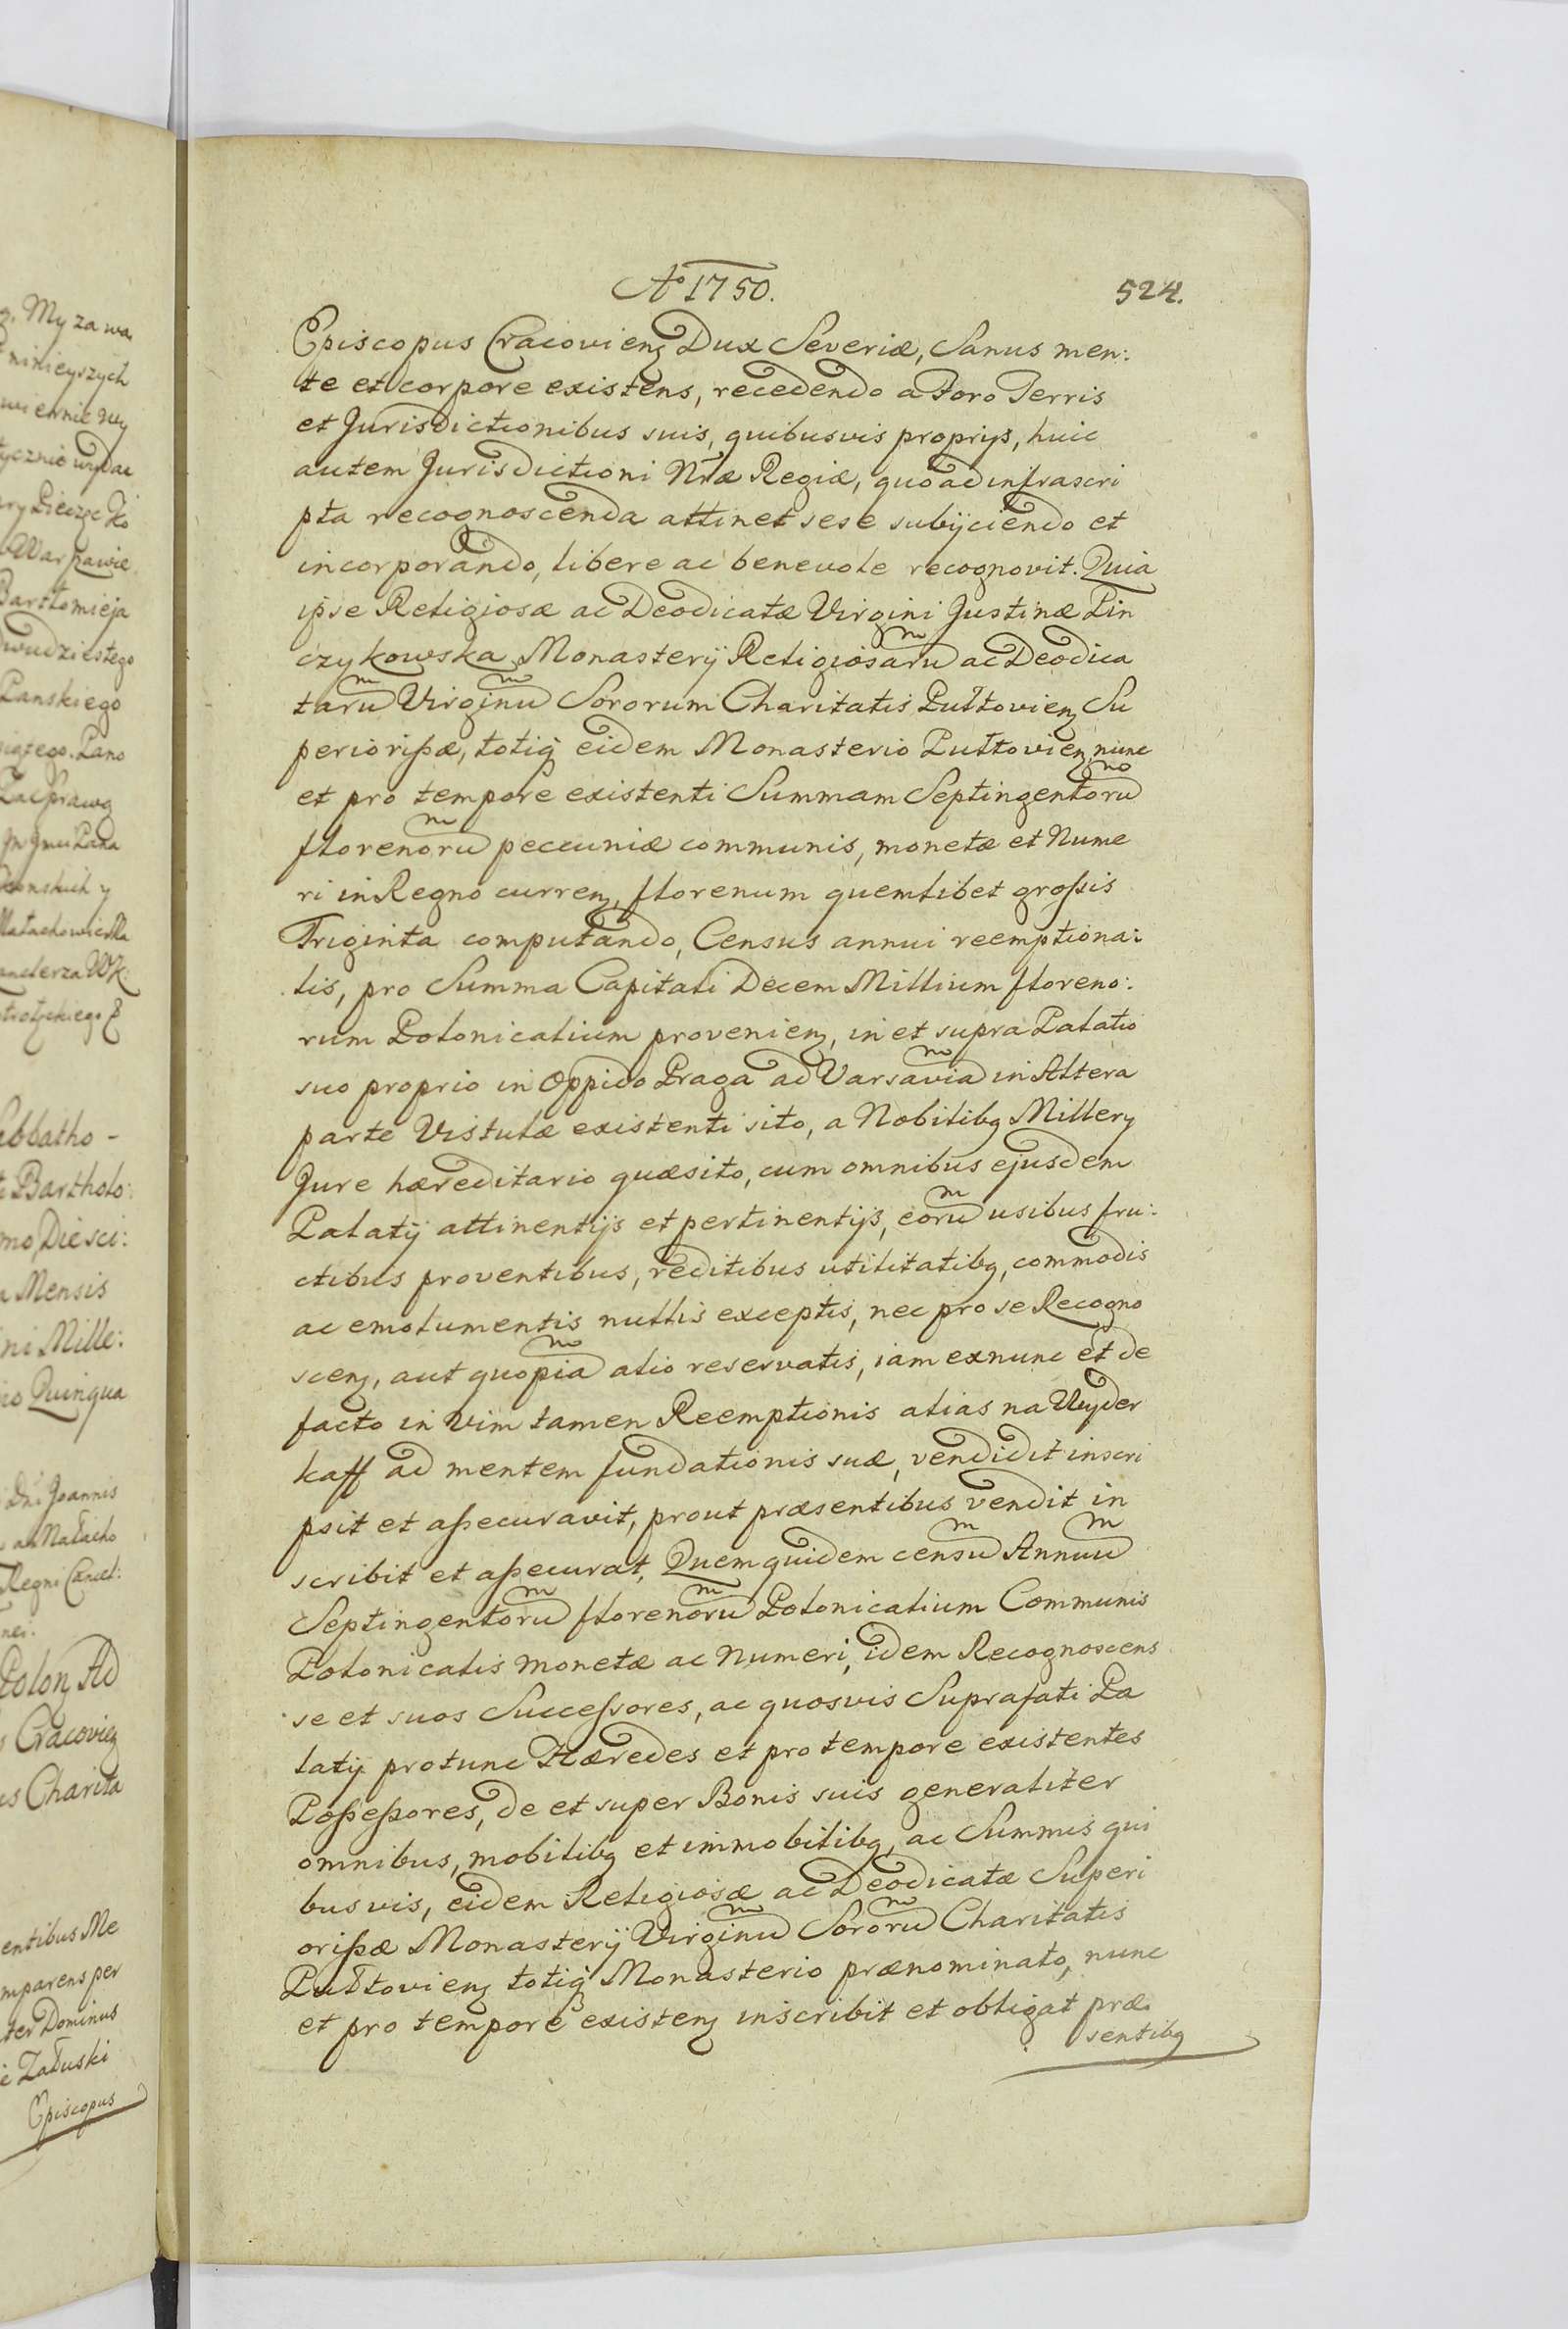 Aº 1750.
524.
Episcopus Cracovienꝫ Dux Severiæ, Sanus men:
te et corpore existens, recedendo a Foro Terris
et Jurisdictionibus suis, quibusvis proprijs, huic
autem Jurisdictioni Nr̃æ Regiæ, quoad infrascri
pta recognoscenda attinet sese subijciendo et
incorporando, libere ac benevole recognovit. Quia
ipse Religiosæ ac Deodicatæ Virgini Justinæ Pin
czykowska Monasterij Religiosaruᵐ ac Deodica
taruᵐ Virginuᵐ Sororum Charitatis Pułtovienꝫ Su
periorißæ, totiq̃ eidem Monasterio Pułtovienꝫ nunc
et pro tempore existenti Summam Septingentoruᵐ
florenoruᵐ peccuniæ communis, monetæ et Nume
ri in Regno currenꝫ, florenum quemlibet großis
Triginta computando, Census annui reemptiona:
lis, pro Summa Capitali Decem Millium floreno:
rum Polonicalium provenienꝫ, in et supra Palatio
suo proprio in Oppido Praga ad Varsaviaᵐ in Altera
parte Vistulæ existenti sito, a Nobilibꝫ Millery
Jure hæreditario quæsito, cum omnibus ejusdem
Palatij attinentijs et pertinentijs, eoruᵐ usibus fru:
ctibus proventibus, reditibus utilitatibꝫ, commodis
ac emolumentis nullis exceptis, nec pro se Recogno
scenꝫ, aut quopiaᵐ alio reservatis, iam exnunc et de
facto in vim tamen Reemptionis alias na Wyder
kaff ad mentem fundationis suæ, vendidit inscri
psit et aßecuravit, prout præsentibus vendit in
scribit et aßecurat, Quem quidem censuᵐ Annuuᵐ
Septingentoruᵐ florenoruᵐ Polonicalium Communis
Polonicalis monetæ ac Numeri, idem Recognoscens
se et suos Succeßores, ac quosvis Suprafati Pa
latij protunc Hæredes et pro tempore existentes
Poßeßores, de et super Bonis suis generaliter
omnibus, mobilibꝫ et immobilibꝫ, ac Summis qui
busvis, eidem Religiosæ ac Deodicatæ Superi
orißæ Monasterij Virginuᵐ Sororuᵐ Charitatis
Pułtovienꝫ totiq̃ Monasterio prænominato, nunc
et pro tempore existenꝫ inscribit et obligat præ
sentibꝫ